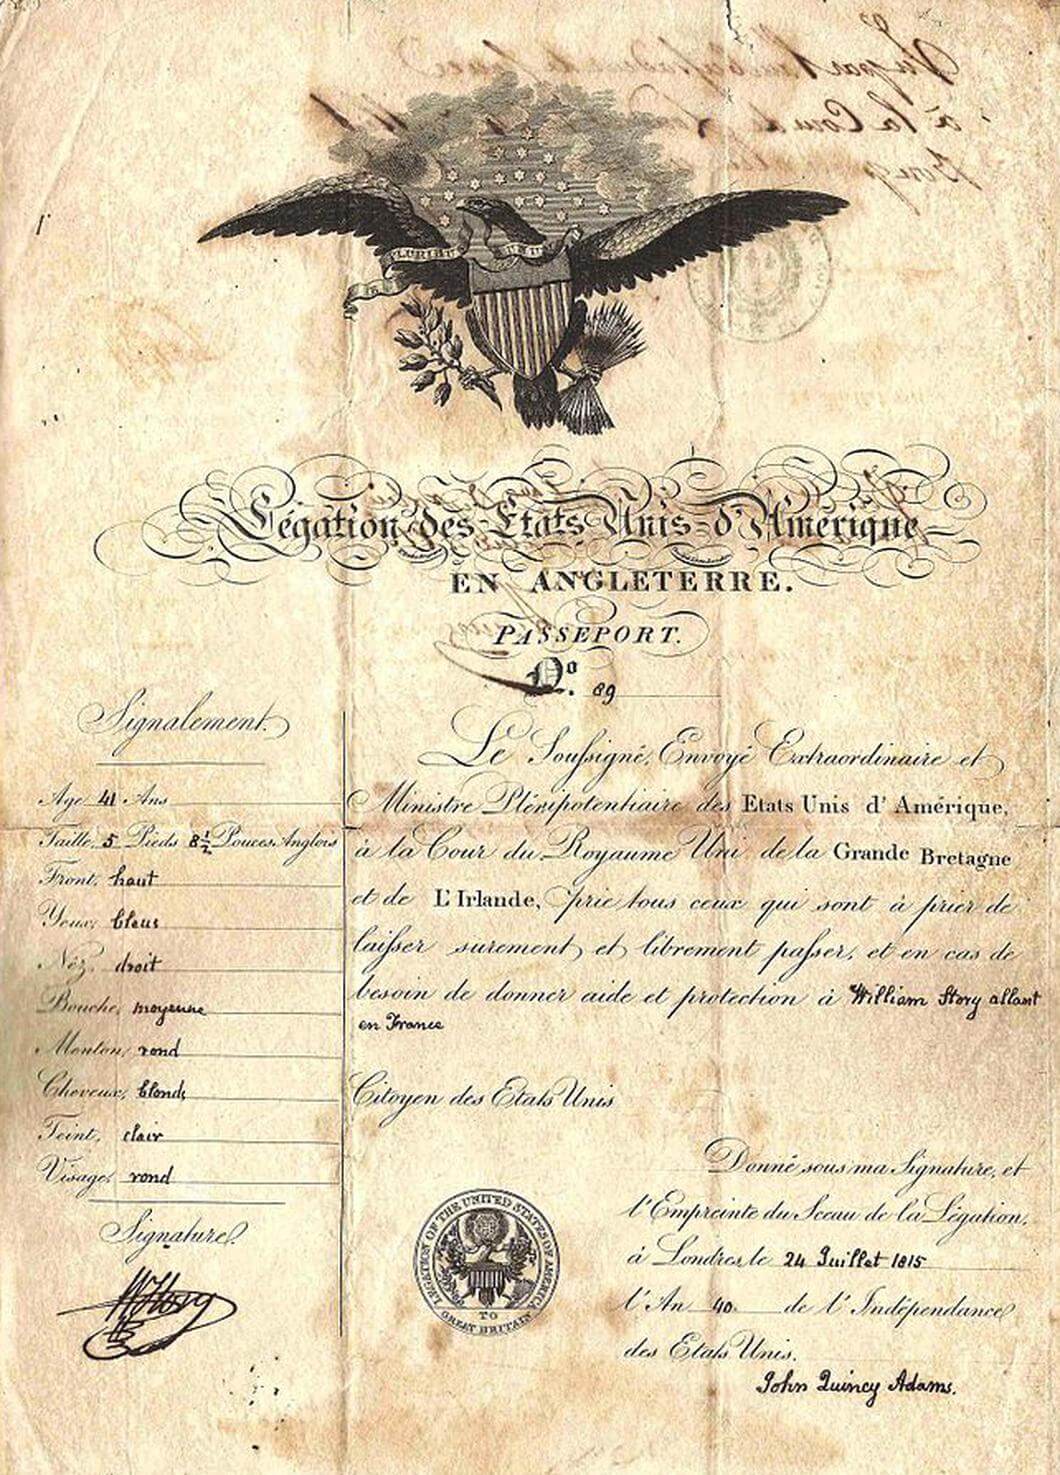 E PLURIBUS UNUM
Légation des Etats Unis d'Amérique
EN ANGLETERRE.
PASSEPORT.
No. 89
Signalement.
Age, 41 Ans
Taille, 5 Pieds 8½ Pouces Anglois
Front, haut
Yeux, bleus
Néz, droit
Bouche, moyenne
Menton, rond
Cheveux, blonds
Teint, clair
Visage, rond
Signature.
W Story
Le Soussigné, Envoyé Extraordinaire et
Ministre Plénipotentiaire des Etats Unis d'Amérique,
à la Cour du Royaume Uni de la Grande Bretagne
et de L'Irlande, prie tous ceux qui sont à prier de
laisser surement et librement passer, et en cas de
besoin de donner aide et protection à William Story allant
en France
Citoyen des Etats Unis
Donné sous ma Signature, et
l'Empreinte du Sceau de la Légation,
à Londres, le 24 Juillet 1815
l'An 40 de l'Indépendance
des Etats Unis.
John Quincy Adams.
LEGATION OF THE UNITED STATES OF AMERICA
TO
GREAT BRITAIN